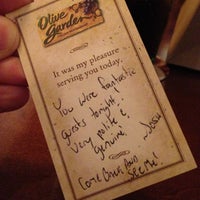 Olive
Garden
It was my pleasure
serving you today.
You were fantastic
guests tonight...
Very polite &
genuine!
Come Back And
See Me!